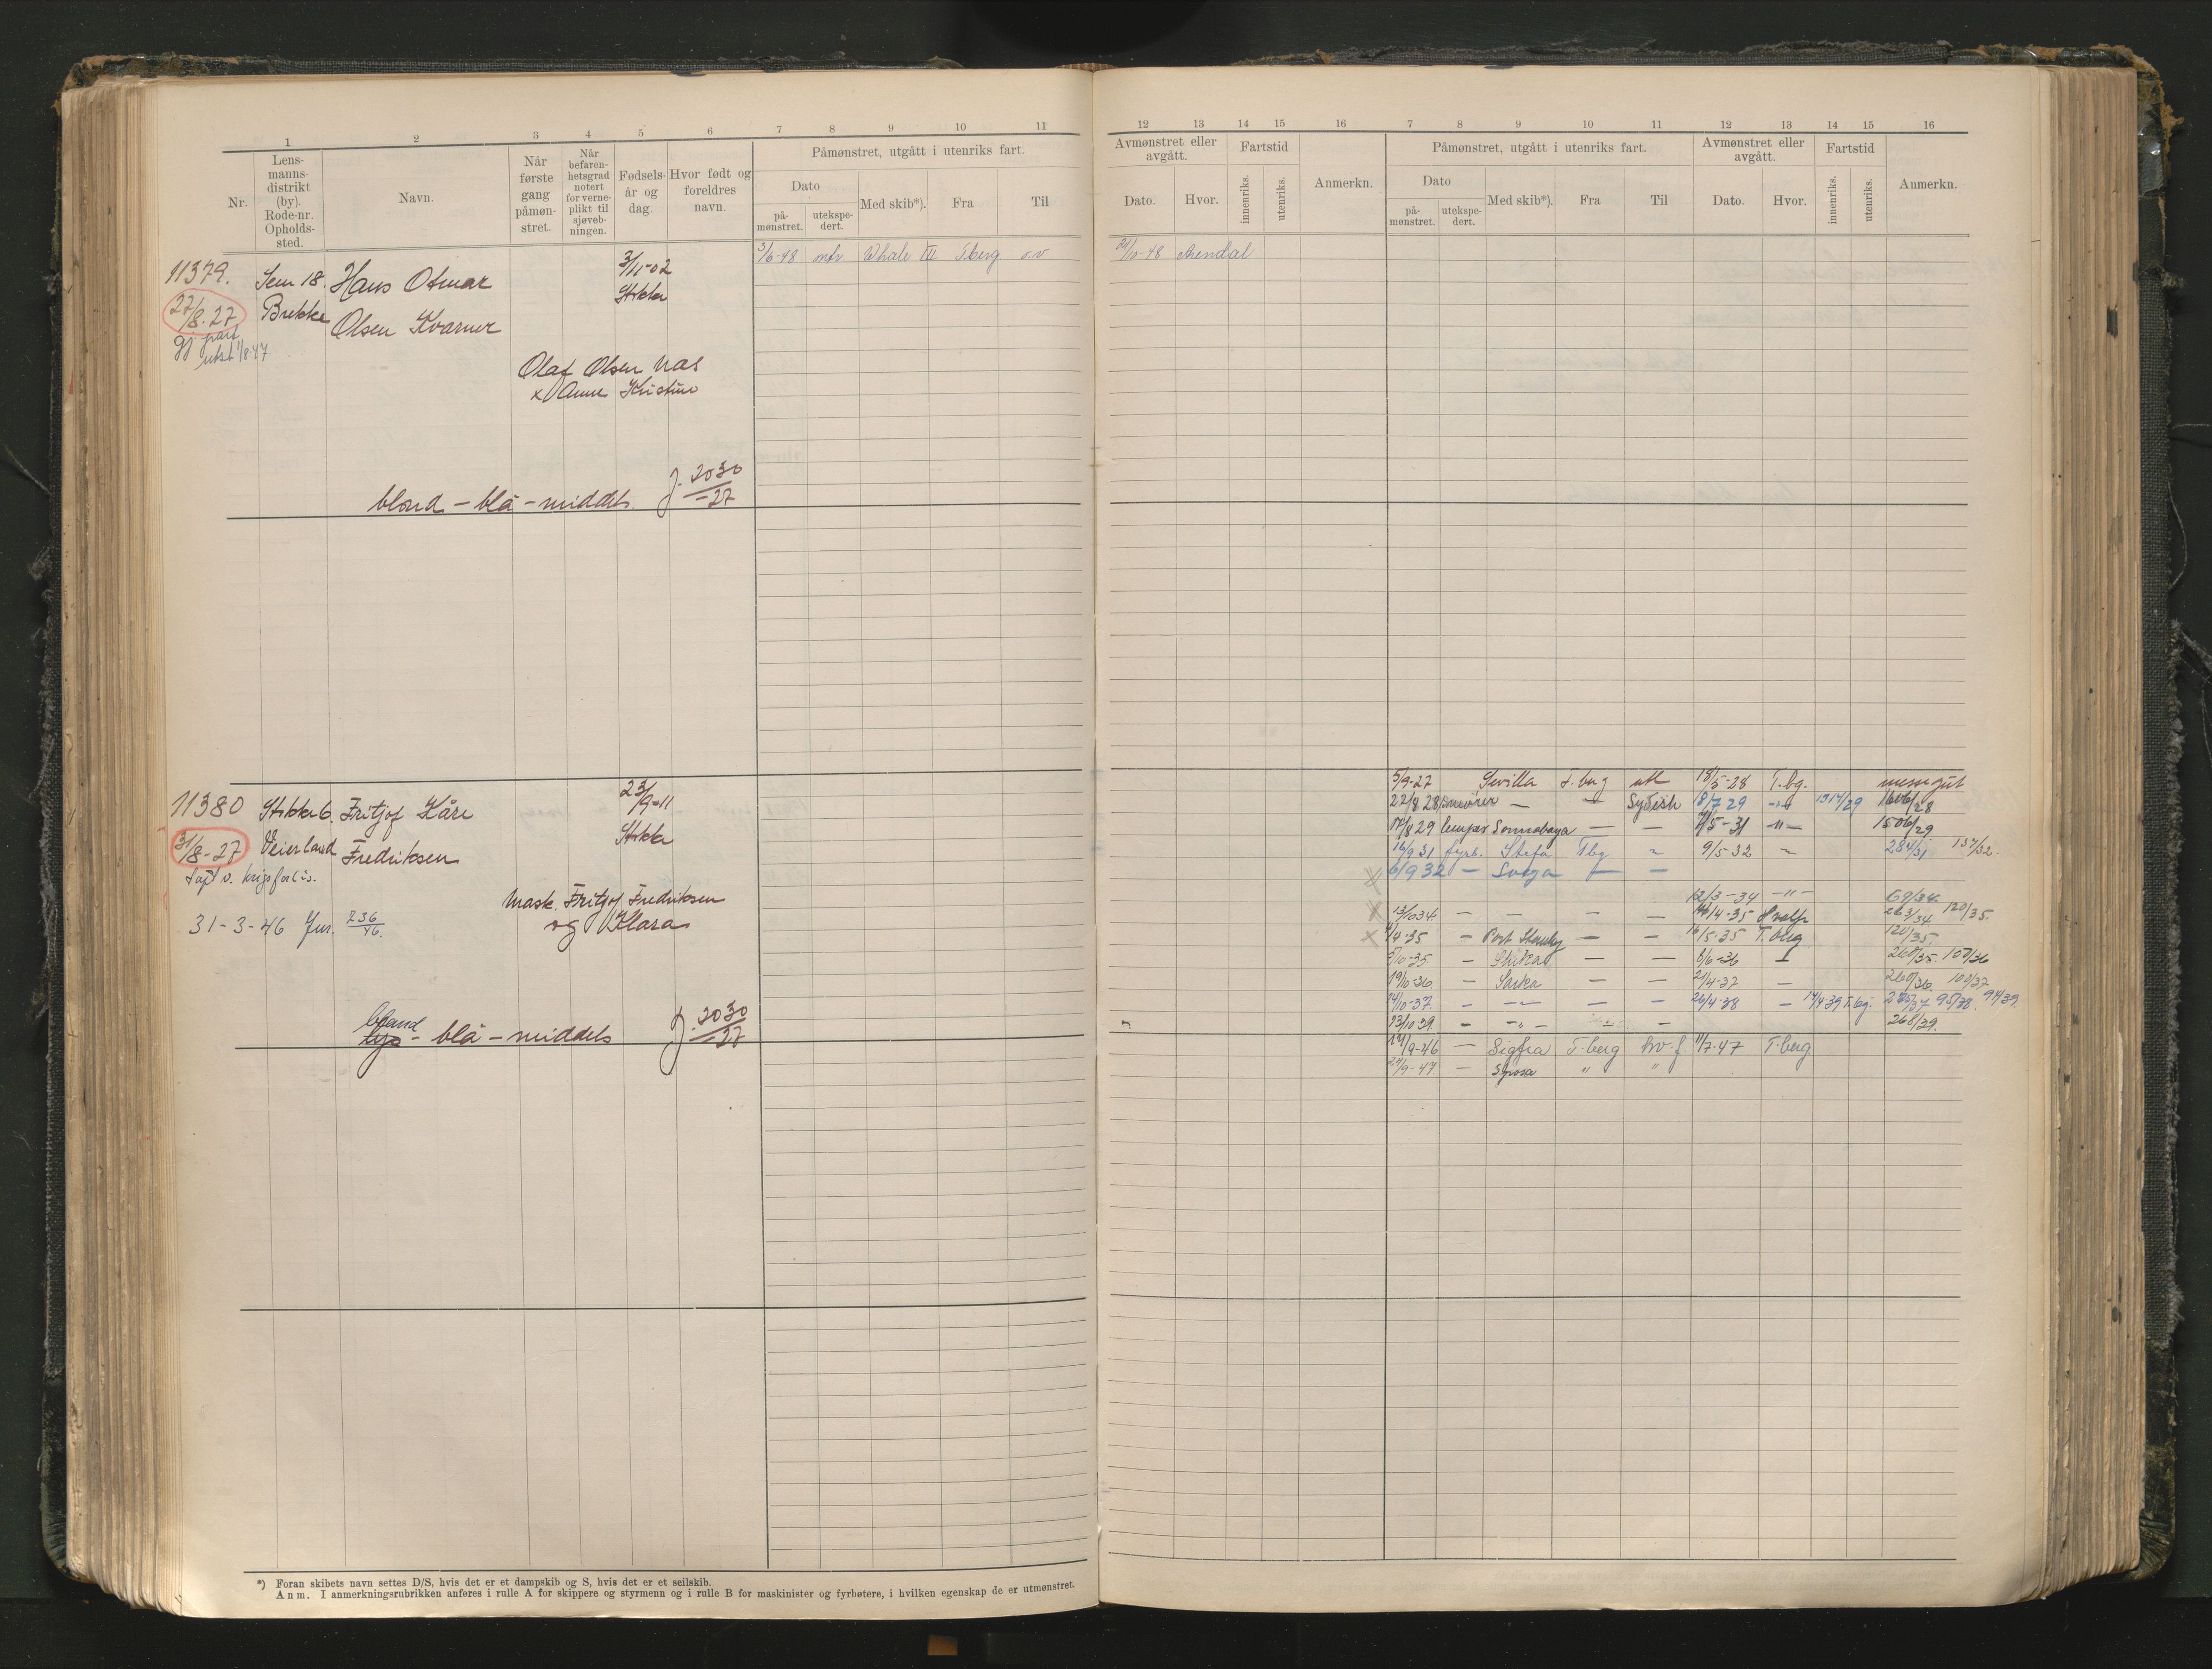 1 2 3 4 5 6 7 8 9 10 11
Nr.
Lens-
manns-
distrikt
(by).
Rode-nr.
Opholds-
sted.
Navn.
Når
første
gang
påmøn-
stret.
Når
befaren-
hetsgrad
notert
for verne-
plikt til
sjøveb-
ningen.
Fødsels-
år og
dag.
Hvor født og
foreldres
navn.
Påmønstret, utgått i utenriks fart.
Dato
på-
mønstret.
utekspe-
dert.
Med skib*).
Fra
Til
11379. Sem 18. Hans Otmar 3/11-02
3/6-48 Whale III T.berg
27/8.27 Brekke Olsen Kvarner Stokke
1/8-47
Olaf Olsen Nas
x Anne Kristine
blond - blå - middels J. 2030/-27
11380 Stokke 6. Fritjof Kåre 23/9-11
31/8-27 Veierland Fredriksen Stokke
tapt v. krigsforlis.
31-3-46 Jnr. 236/46.
Mask. Fritjof Fredriksen
og Klara
blond
lys - blå - middels J. 2030/-27
*) Foran skibets navn settes D/S, hvis det er et dampskib og S, hvis det er et seilskib.
Anm. I anmerkningsrubrikken anføres i rulle A for skippere og styrmenn og i rulle B for maskinister og fyrbøtere, i hvilken egenskap de er utmønstret.
12 13 14 15 16 7 8 9 10 11 12 13 14 15 16
Avmønstret eller
avgått.
Dato.
Hvor.
Fartstid
innenriks.
utenriks.
Anmerkn.
Påmønstret, utgått i utenriks fart.
Dato
på-
mønstret.
utekspe-
dert.
Med skib*).
Fra
Til
Avmønstret eller
avgått.
Dato.
Hvor.
Fartstid
innenriks.
utenriks.
Anmerkn.
21/10-48 Arendal
5/9-27 Sevilla T.berg 18/5-28 T.bg. messgut
22/8 28 — — Sydish 18/7 29 1606/28
17/8 29 lemper — — 7/5-31 -"- 1506/29
16/9 31 fyrb. Stefa Tbg 9/5-32 284/31 137/32.
6/9 32 — Svega — —
12/3-34 -"- 69/34
13/10 34 — — — — 4-35 Hvalfr 120/35.
4-35 — Port Stanley — — 16/5-35 T.berg 120/35.
5/10-35 — — — 8/6-36 268/35. 107/36
19/10-36 — Sarka — — 21/4-37 — 260/36 100/37
14/10-37 — -"- — — 26/4-38 — 14/4 39 T.bg. 95/38. 94/39.
13/10-39. — -"- — — 268/39.
9-46 — Sigfra T.berg hv.f. 11/7-47 T.berg
9-47 — Sposa " "